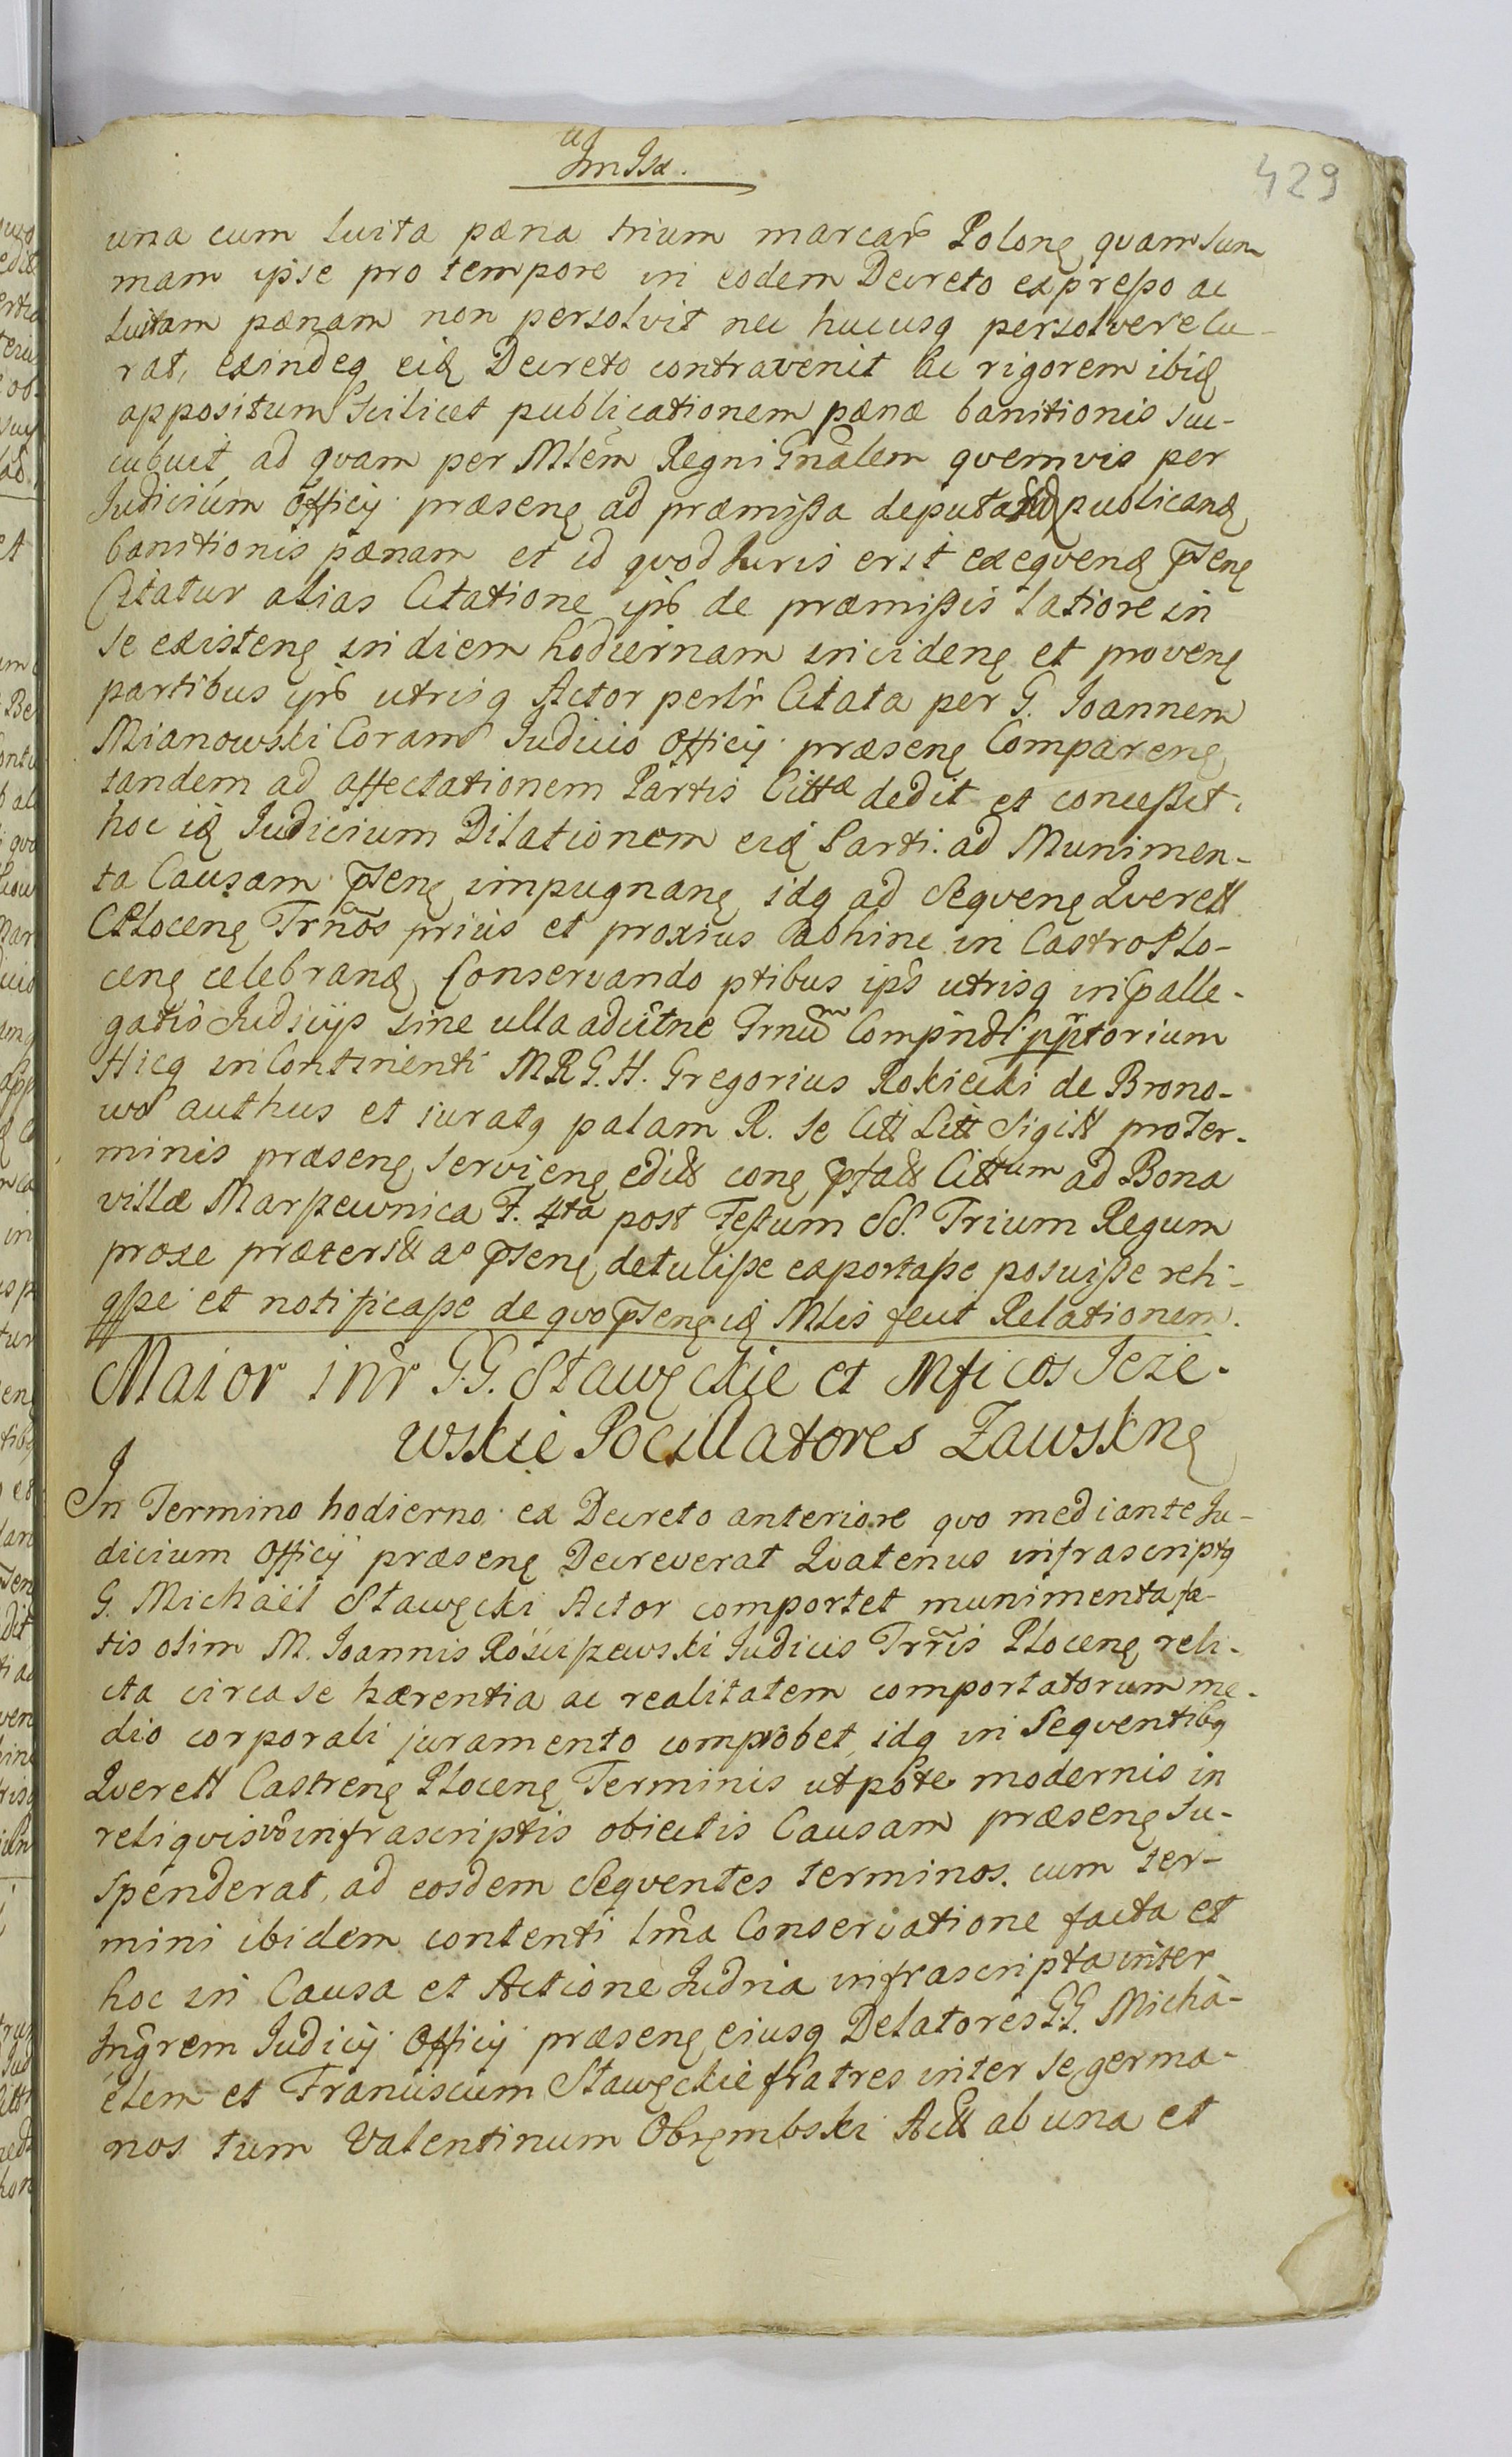 429
una cum luita pæna trium marcar Polonę quam sum
mam ipse pro tempore in eodem Decreto expresso ac
luitam pænam non persolvit nec hucusq persolvere cu-
rat, exindeq eid Decreto contravenit ac rigorem ibid
appositum Scilicet publicationem pænæ banitionis suc-
cubuit, ad quam per Mlem Regni Gnalem quemvis per
Judicium Officij præsenę ad præmissa deputand publicand
banitionis pænam et id quod Iuris erit exequend pñsenę
Citatur alias Citatione ips de præmissis latiore in
se existenę in diem hodiernam incidenę et provenę
partibus ips utrisq Actor perlr Citata per G. Joannem
Mianowski Coram Judicio Officij præsenę Comparenę
tandem ad affectationem Partis Cittæ dedit et concessit
hoc id Judicium Dilationem eid Parti ad Munimen-
ta Causam pñsenę impugnanę idq ad Sequenę Querell
Plocenę Trnos prius et proxius abhinc in Castro Plo-
cenę celebrand Conservando ptibus ips utrisq in palle-
gatis Judicijs sine ulla adcitne Trnum Compndi pptorium
Hicq in Continenti MRG. H. Gregorius Rokicki de Brono-
wo authus et iuratq palam R. se Citt Litt Sigill pro Ter-
minis præsenę servienę edict conę Cittum ad Bona
villæ Marszewnica F. 4ta post Festum SS. Trium Regum
proxe præterit ao pñsenę detulisse exportasse posuisse reli-
qsse et notificasse de quo pñsenę id Mlis fecit Relationem.
Maior inr G.G. Stawęckie et Mficos Jeże-
wskie Pocillatores Zawskrę
In Termino hodierno ex Decreto anteriore quo mediante Ju-
dicium Officij præsenę Decreverat Quatenus infrascriptq
G. Michaël Stawęcki Actor comportet munimenta fa-
tis olim M. Joannis Rościszewski Judicis Trris Plocenę reli-
cta circa se hærentia ac realitatem comportatorum me-
dio corporali juramento comprobet, idq in Sequentibq
Querell Castrenę Plocenę Terminis utpote modernis in
reliquis vo infrascriptis obiectis Causam præsenę su-
spenderat, ad eosdem Sequentes terminos. cum ter-
mini ibidem contenti lma Conservatione facta et
hoc in Causa et Actione Judria infrascripta inter
Ingrem Judicij Officij præsenę eiusq Delatores G.G. Micha-
ëlem et Franciscum Stawęckie fratres inter se germa-
nos tum Valentinum Obrembski Act ab una et